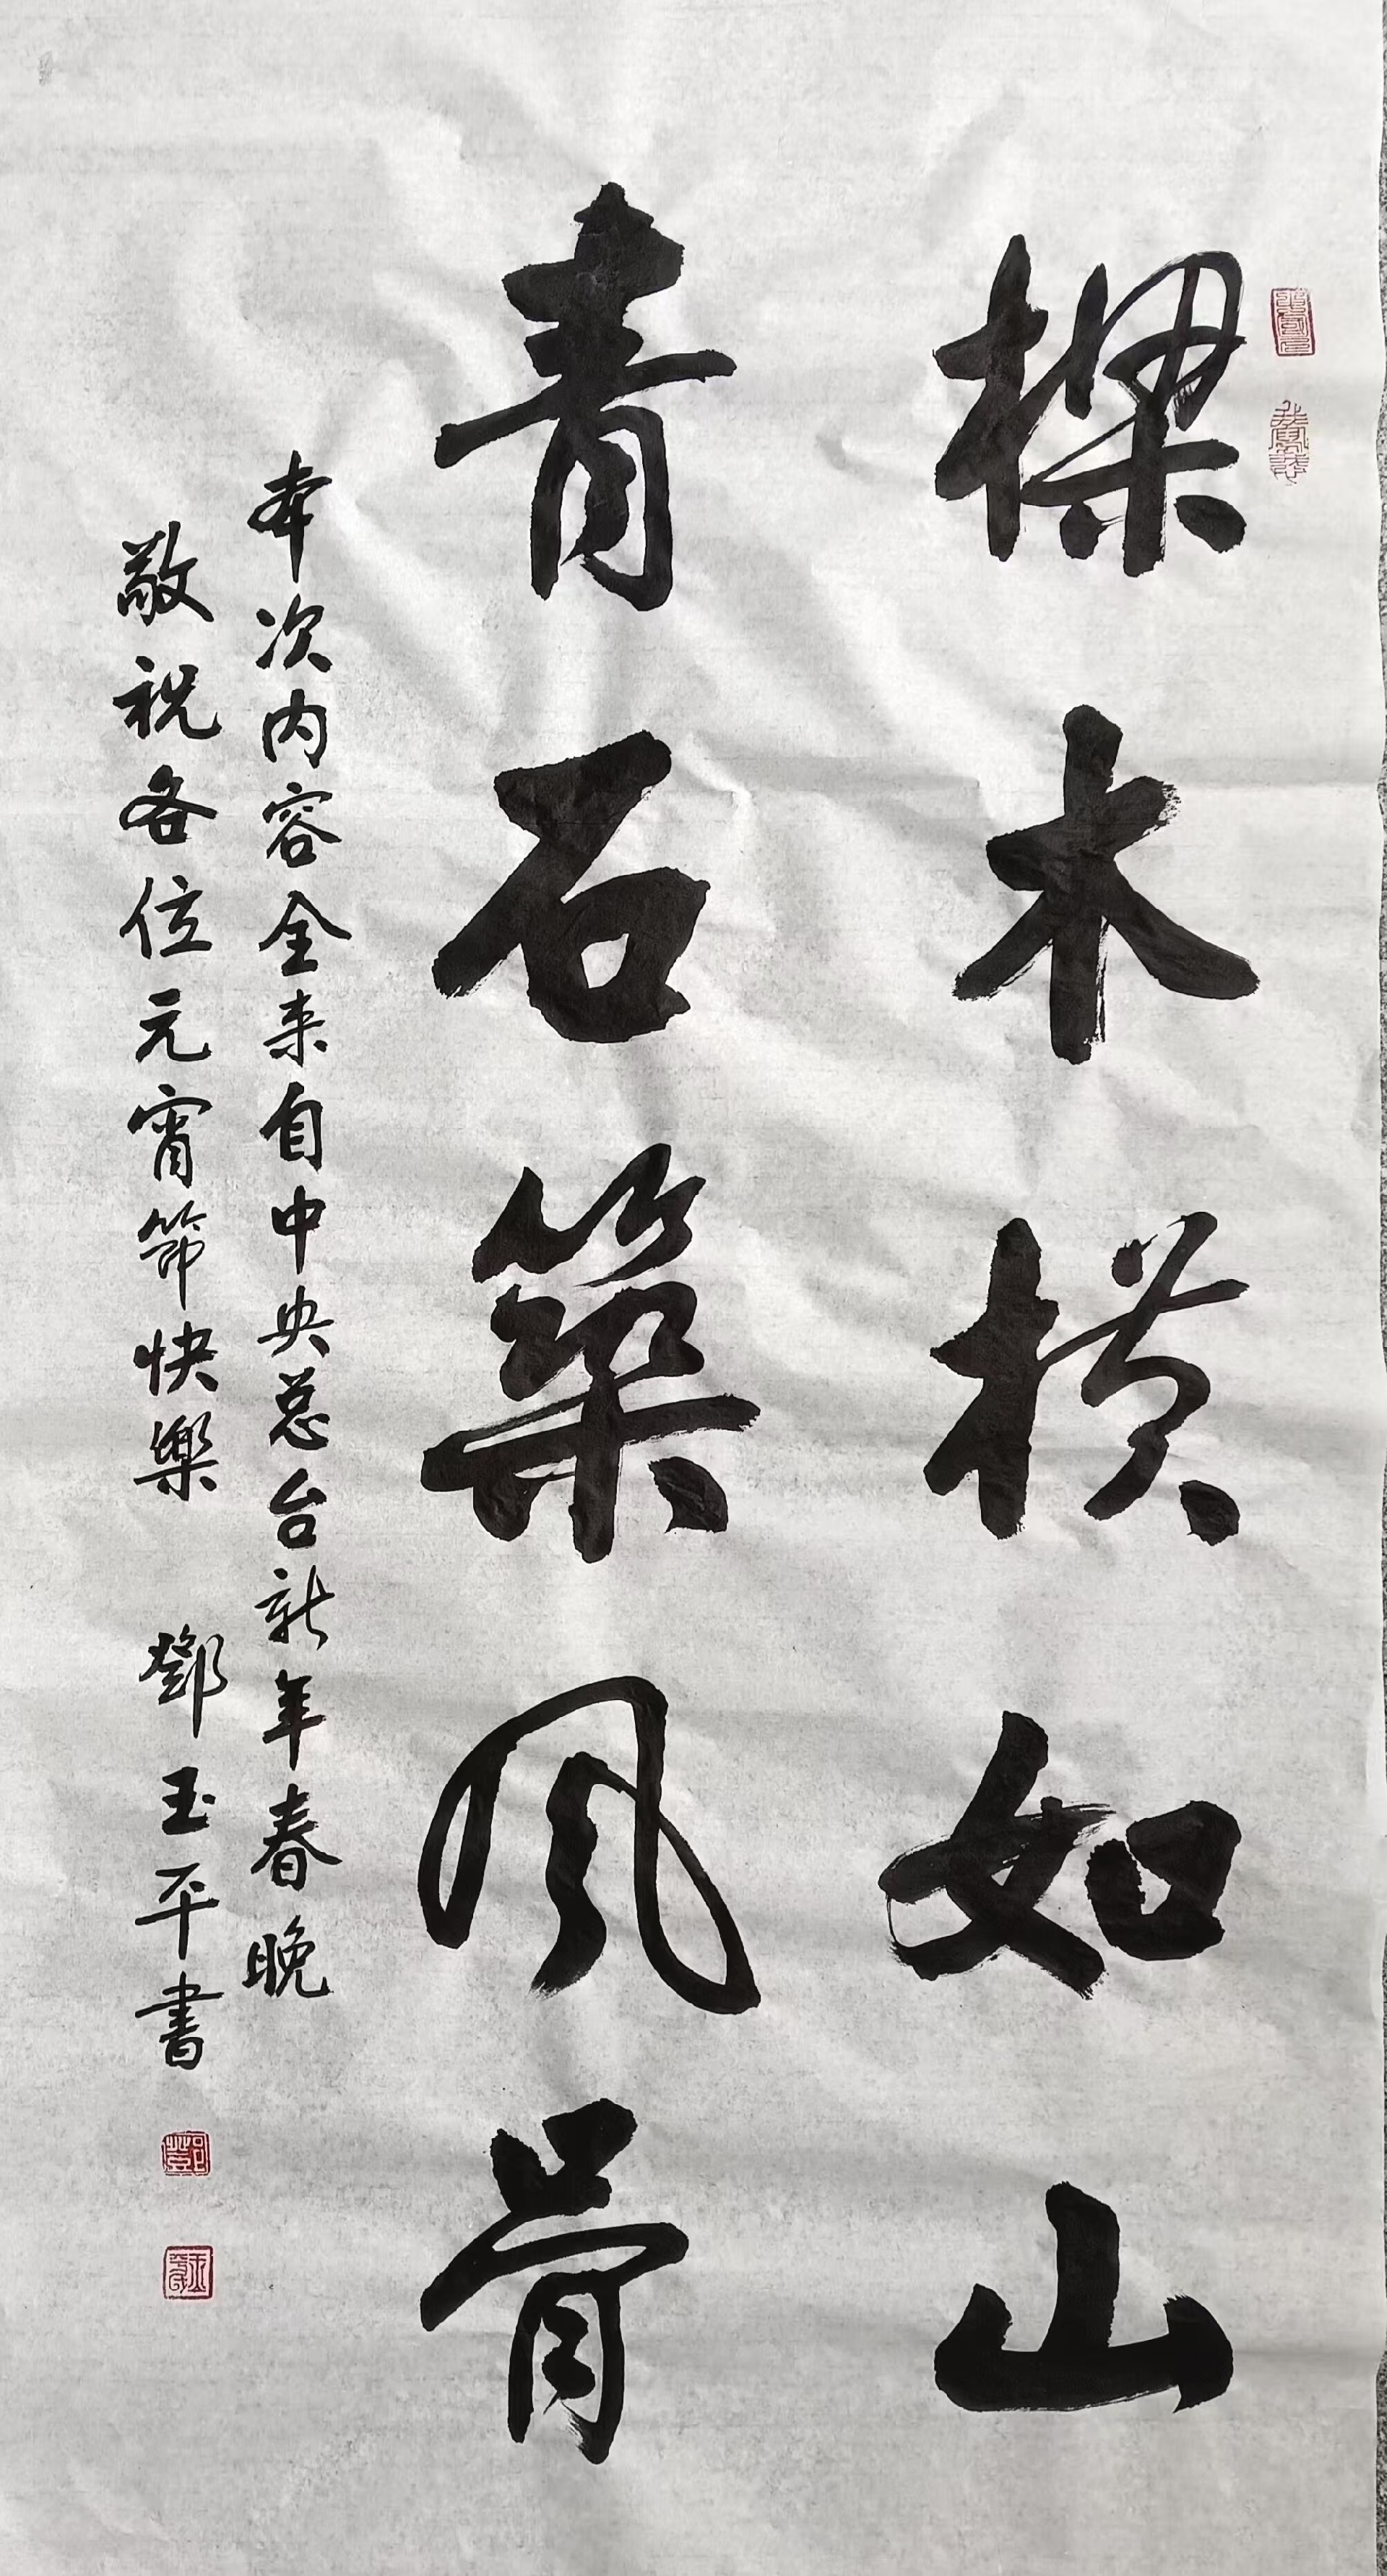 樑木横如山
青石築風骨
本次内容全来自中央总台新年春晚
敬祝各位元宵節快樂 鄧玉平書